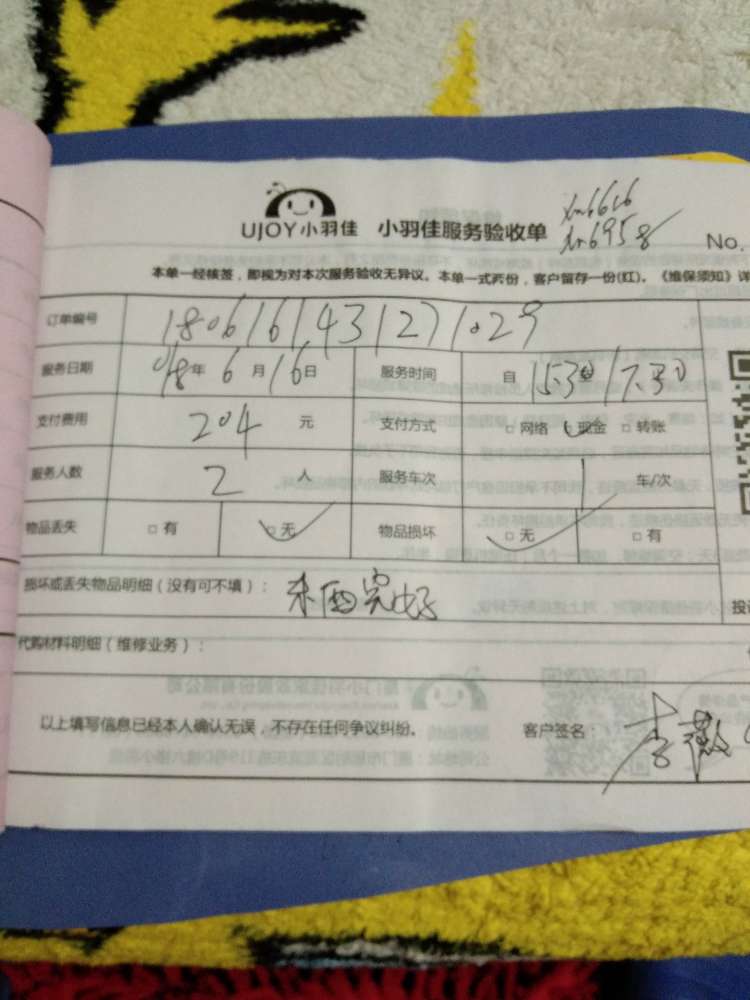 UJOY小羽佳 小羽佳服务验收单
xm6616
xm6958
No.
本单一经核签，即视为对本次服务验收无异议。本单一式两份，客户留存一份(红)。《维保须知》详
订单编号 1806161431271029
服务日期 018年6月16日 服务时间 自 15:30 17:30
支付费用 204 元 支付方式 □网络 现金 □转账
服务人数 2 人 服务车次 1 车/次
物品丢失 □有 □无 物品损坏 □无 □有
损坏或丢失物品明细（没有可不填）： 东西完好
投
代购材料明细（维修业务）：
以上填写信息已经本人确认无误，不存在任何争议纠纷。 客户签名： 李